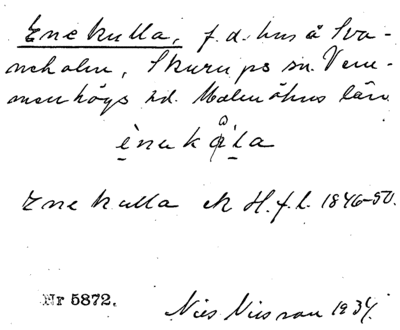 Enekulla, f.d. hus å Sva-
neholm, Skurups sn. Vem-
menhögs hd. Malmöhus län.
ènekå̀la
Enekulla ek H.f.l. 1846-50.
Nr 5872.
Nils Nilsson 1934.